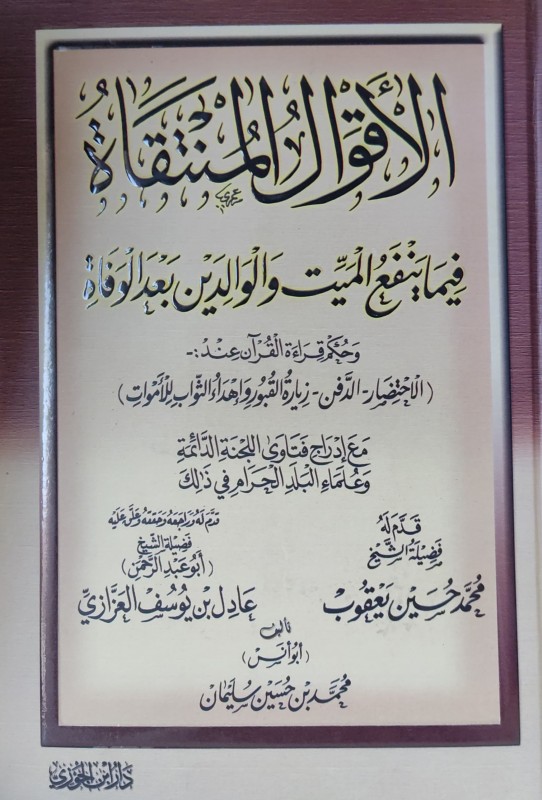 الأَقْوَالُ المُنْتَقَاةُ
فِيمَا يَنْفَعُ المَيِّتَ وَالْوَالِدَيْنِ بَعْدَ الْوَفَاةِ
وَحُكْمُ قِرَاءَةِ الْقُرْآنِ عِنْدَ :-
(الاحْتِضَار - الدَّفن - زِيَارَةُ القُبُورِ وَإِهْدَاءُ الثَّوَابِ لِلْأَمْوَاتِ)
مَعَ إِدْرَاجِ فَتَاوَى اللَّجْنَةِ الدَّائِمَةِ
وَعُلَمَاءِ الْبَلَدِ الْحَرَامِ فِي ذَلِكَ
قَدَّمَ لَهُ
فَضِيلَةُ الشَّيْخِ
مُحَمَّد حُسَيْن يَعْقُوب
قَدَّمَ لَهُ وَرَاجَعَهُ وَحَقَّقَهُ وَعَلَّقَ عَلَيْهِ
فَضِيلَةُ الشَّيْخِ
(أَبُو عَبْدِ الرَّحْمَنِ)
عَادِل بْن يُوسُف الْعَزَازِيّ
تأليف
(أبو أنس)
مُحَمَّد بْن حُسَيْن سُلَيْمَان
دَار ابْن الجَوْزِيّ